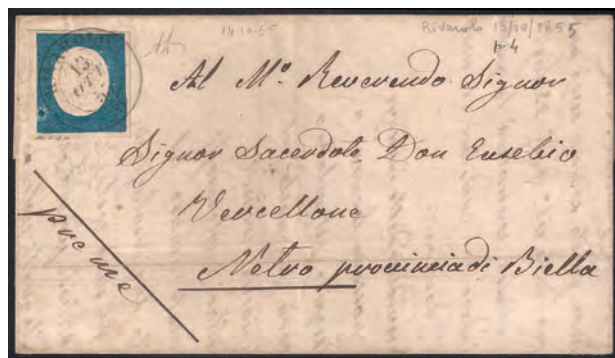 14-10-55
Rivarolo 13/10/1855
p. 4
13
OTT
Al M.º Reverendo Signor
Signor Sacerdote Don Eusebio
Vercellone
Netro provincia di Biella